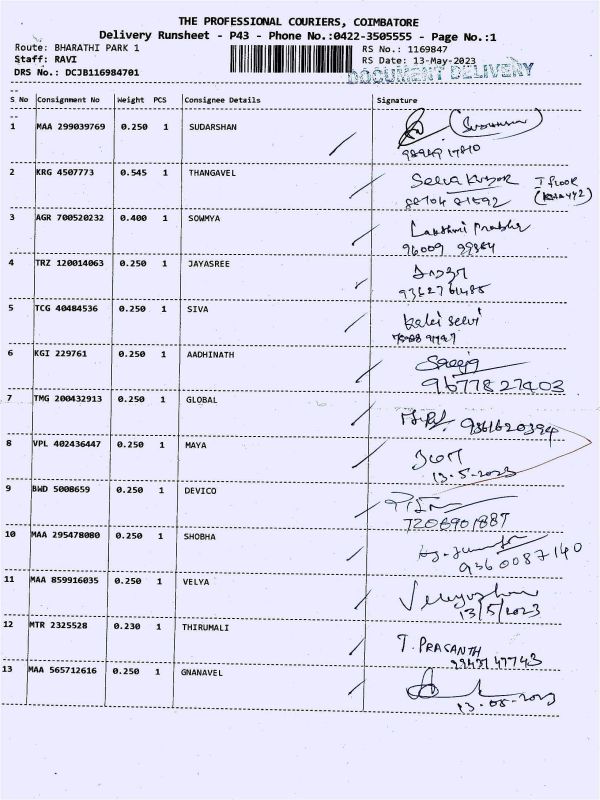 THE PROFESSIONAL COURIERS, COIMBATORE
Delivery Runsheet - P43 - Phone No.:0422-3505555 - Page No.:1
Route: BHARATHI PARK 1 RS No.: 1169847
Staff: RAVI RS Date: 13-May-2023
DRS No.: DCJB116984701 DOCUMENT DELIVERY
S No Consignment No Weight PCS Consignee Details Signature
1 MAA 299039769 0.250 1 SUDARSHAN
2 KRG 4507773 0.545 1 THANGAVEL Selva Kumar I floor
3 AGR 700520232 0.400 1 SOWMYA Lakshmi Prabha
96009 99384
4 TRZ 120014063 0.250 1 JAYASREE
93627 61485
5 TCG 40484536 0.250 1 SIVA Kalai Selvi
6 KGI 229761 0.250 1 AADHINATH
9677827403
7 TMG 200432913 0.250 1 GLOBAL 9361620394
8 VPL 402436447 0.250 1 MAYA
13.5.2023
9 BWD 5008659 0.250 1 DEVICO
7206901887
10 MAA 295478080 0.250 1 SHOBHA
9360087140
11 MAA 859916035 0.250 1 VELYA
13/5/2023
12 MTR 2325528 0.230 1 THIRUMALI T. PRASANTH
99437 47743
13 MAA 565712616 0.250 1 GNANAVEL
13-05-2023